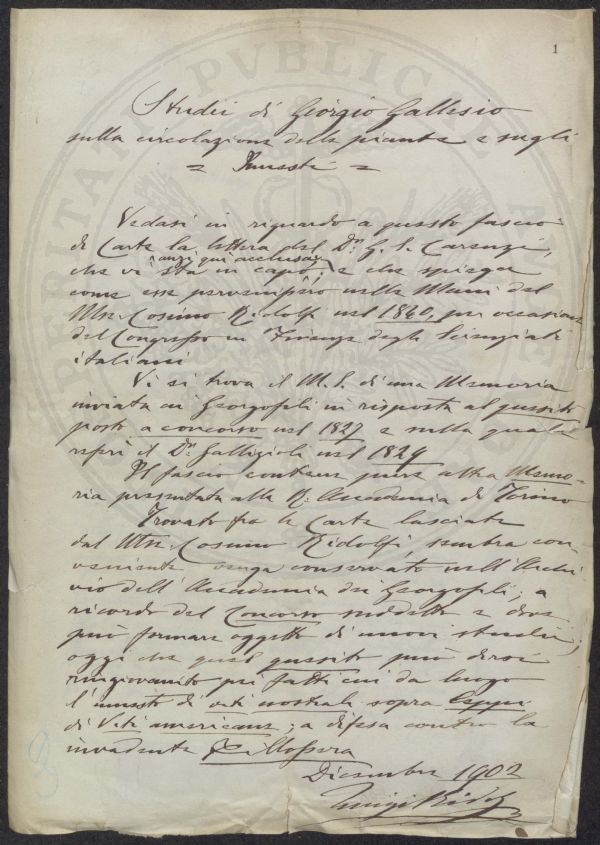 1
Studii di Giorgio Gallesio
sulla circolazione delle piante e sugli
= Innesti =
Vedasi in riguardo a questo fascio
di Carte la lettera del Dr. G. S. Carenzi,
anzi qui acclusa
che vi sta in capo, e che spiega
come esse pervenissero nelle Mani del
Mse Cosimo Ridolfi nel 1840, per occasione
del Congresso in Firenze degli Scienziati
italiani
Vi si trova il M.S. di una Memoria
inviata ai Georgofili in risposta al quesito
posto a concorso nel 1827 e sulla quale
riferì il Dr. Gallizioli nel 1829
Il fascio contiene pure altra Memo-
ria presentata alla R. Accademia di Torino
Trovato fra le Carte lasciate
dal Mse Cosimo Ridolfi, sembra con-
veniente venga conservato nell'Archi-
vio dell'Accademia dei Georgofili; a
ricordo del Concorso suddetto e dove
può formare oggetto di nuovi studii;
oggi che quel quesito può dirsi
ringiovanito pei fatti cui da luogo
l'innesto di viti nostrali sopra Ceppi
di Viti americane, a difesa contro la
invadente Fillossera
Dicembre 1902
Luigi Ridolfi
PVBLICAE